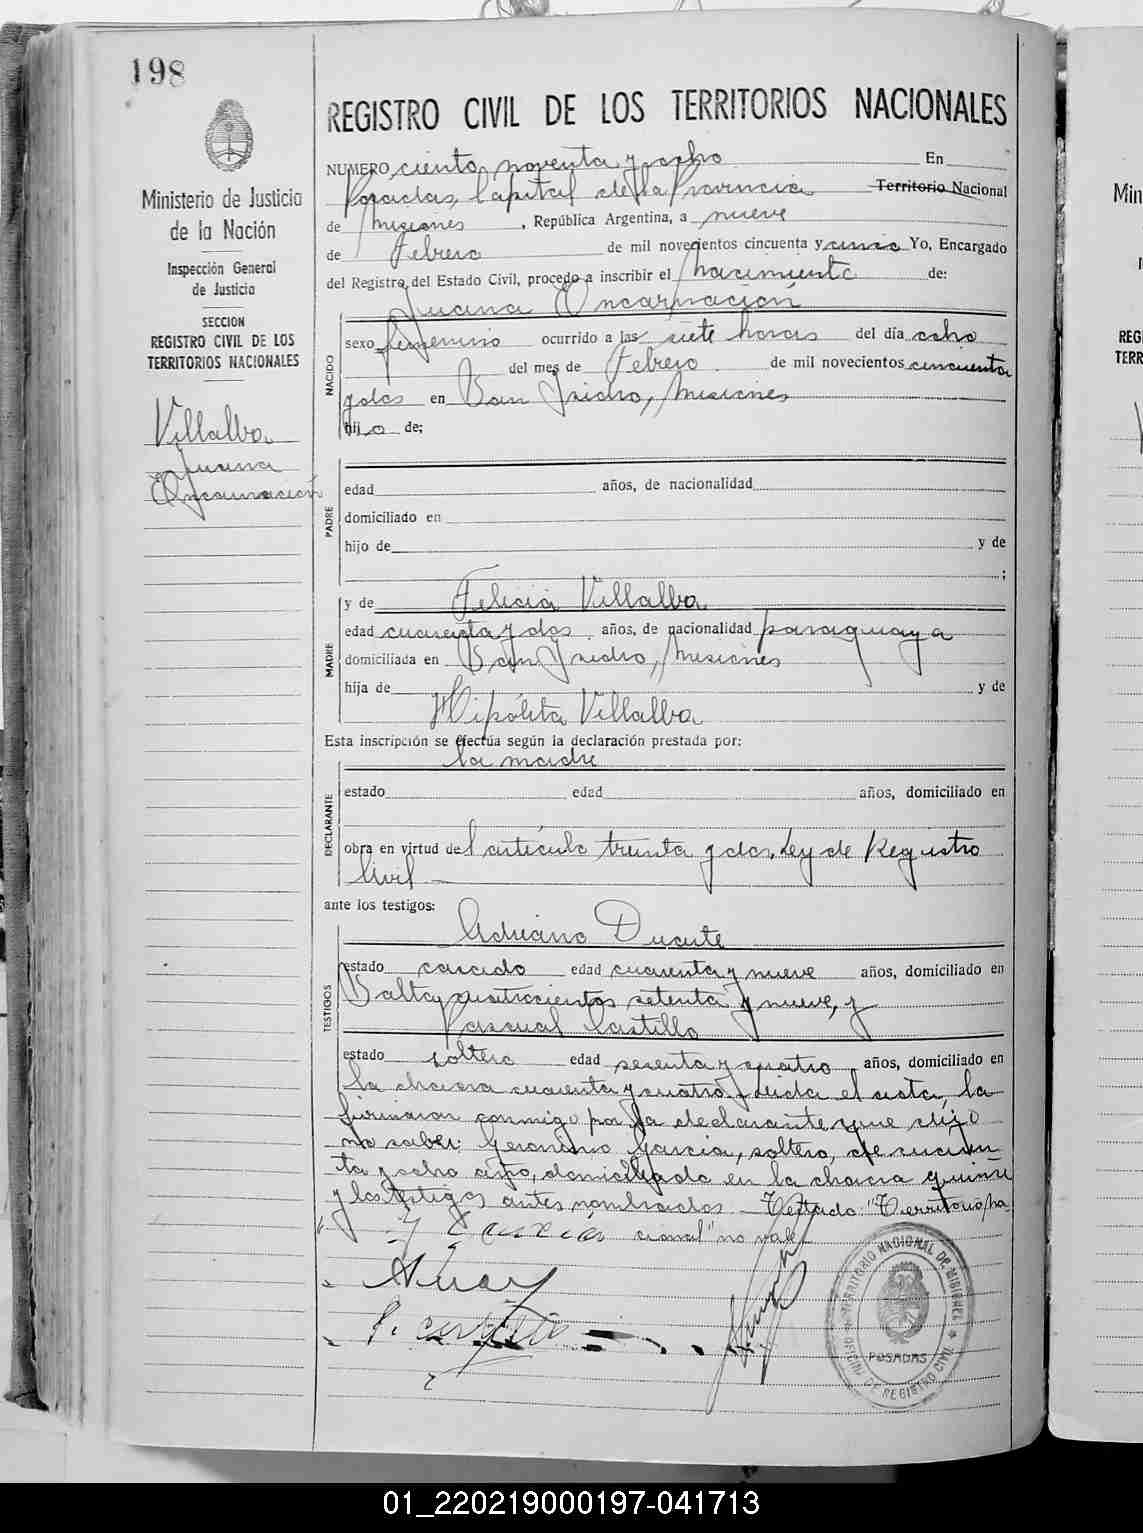 198
Ministerio de Justicia
de la Nación
Inspección General
de Justicia
SECCION
REGISTRO CIVIL DE LOS
TERRITORIOS NACIONALES
Villalba
Juana
Encarnación
REGISTRO CIVIL DE LOS TERRITORIOS NACIONALES
NUMERO ciento noventa y ocho En
Posadas, Capital de la Provincia Territorio Nacional
de Misiones, República Argentina, a nueve
de Febrero de mil novecientos cincuenta y cinco Yo, Encargado
del Registro del Estado Civil, procedo a inscribir el nacimiento de:
Juana Encarnación
NACIDO
sexo femenino ocurrido a las siete horas del día ocho
del mes de Febrero de mil novecientos cincuenta
y dos en San Isidro, Misiones
hija de;
PADRE
edad años, de nacionalidad
domiciliado en
hijo de y de
;
MADRE
y de Felicia Villalba
edad cuarenta y dos años, de nacionalidad paraguaya
domiciliada en San Isidro, Misiones
hija de y de
Hipólita Villalba
Esta inscripción se efectúa según la declaración prestada por:
la madre
DECLARANTE
estado edad años, domiciliado en
obra en virtud del artículo treinta y dos, Ley de Registro
Civil
ante los testigos:
TESTIGOS
Adriano Duarte
estado casado edad cuarenta y nueve años, domiciliado en
Salta cuatrocientos setenta y nueve, y
Pascual Castillo
estado soltero edad sesenta y cuatro años, domiciliado en
la chacra cuarenta y cuatro. Leída el acta, la
firmaron conmigo por la declarante que dijo
no saber: Gerónimo García, soltero, de cuaren-
ta y ocho años, domiciliado en la chacra quince
y los testigos antes nombrados. - Testado: "Territorio Na
cional" no vale
TERRITORIO NACIONAL DE MISIONES
OFICINA DE REGISTRO CIVIL
POSADAS
Min
REG
TERR
01_220219000197-041713